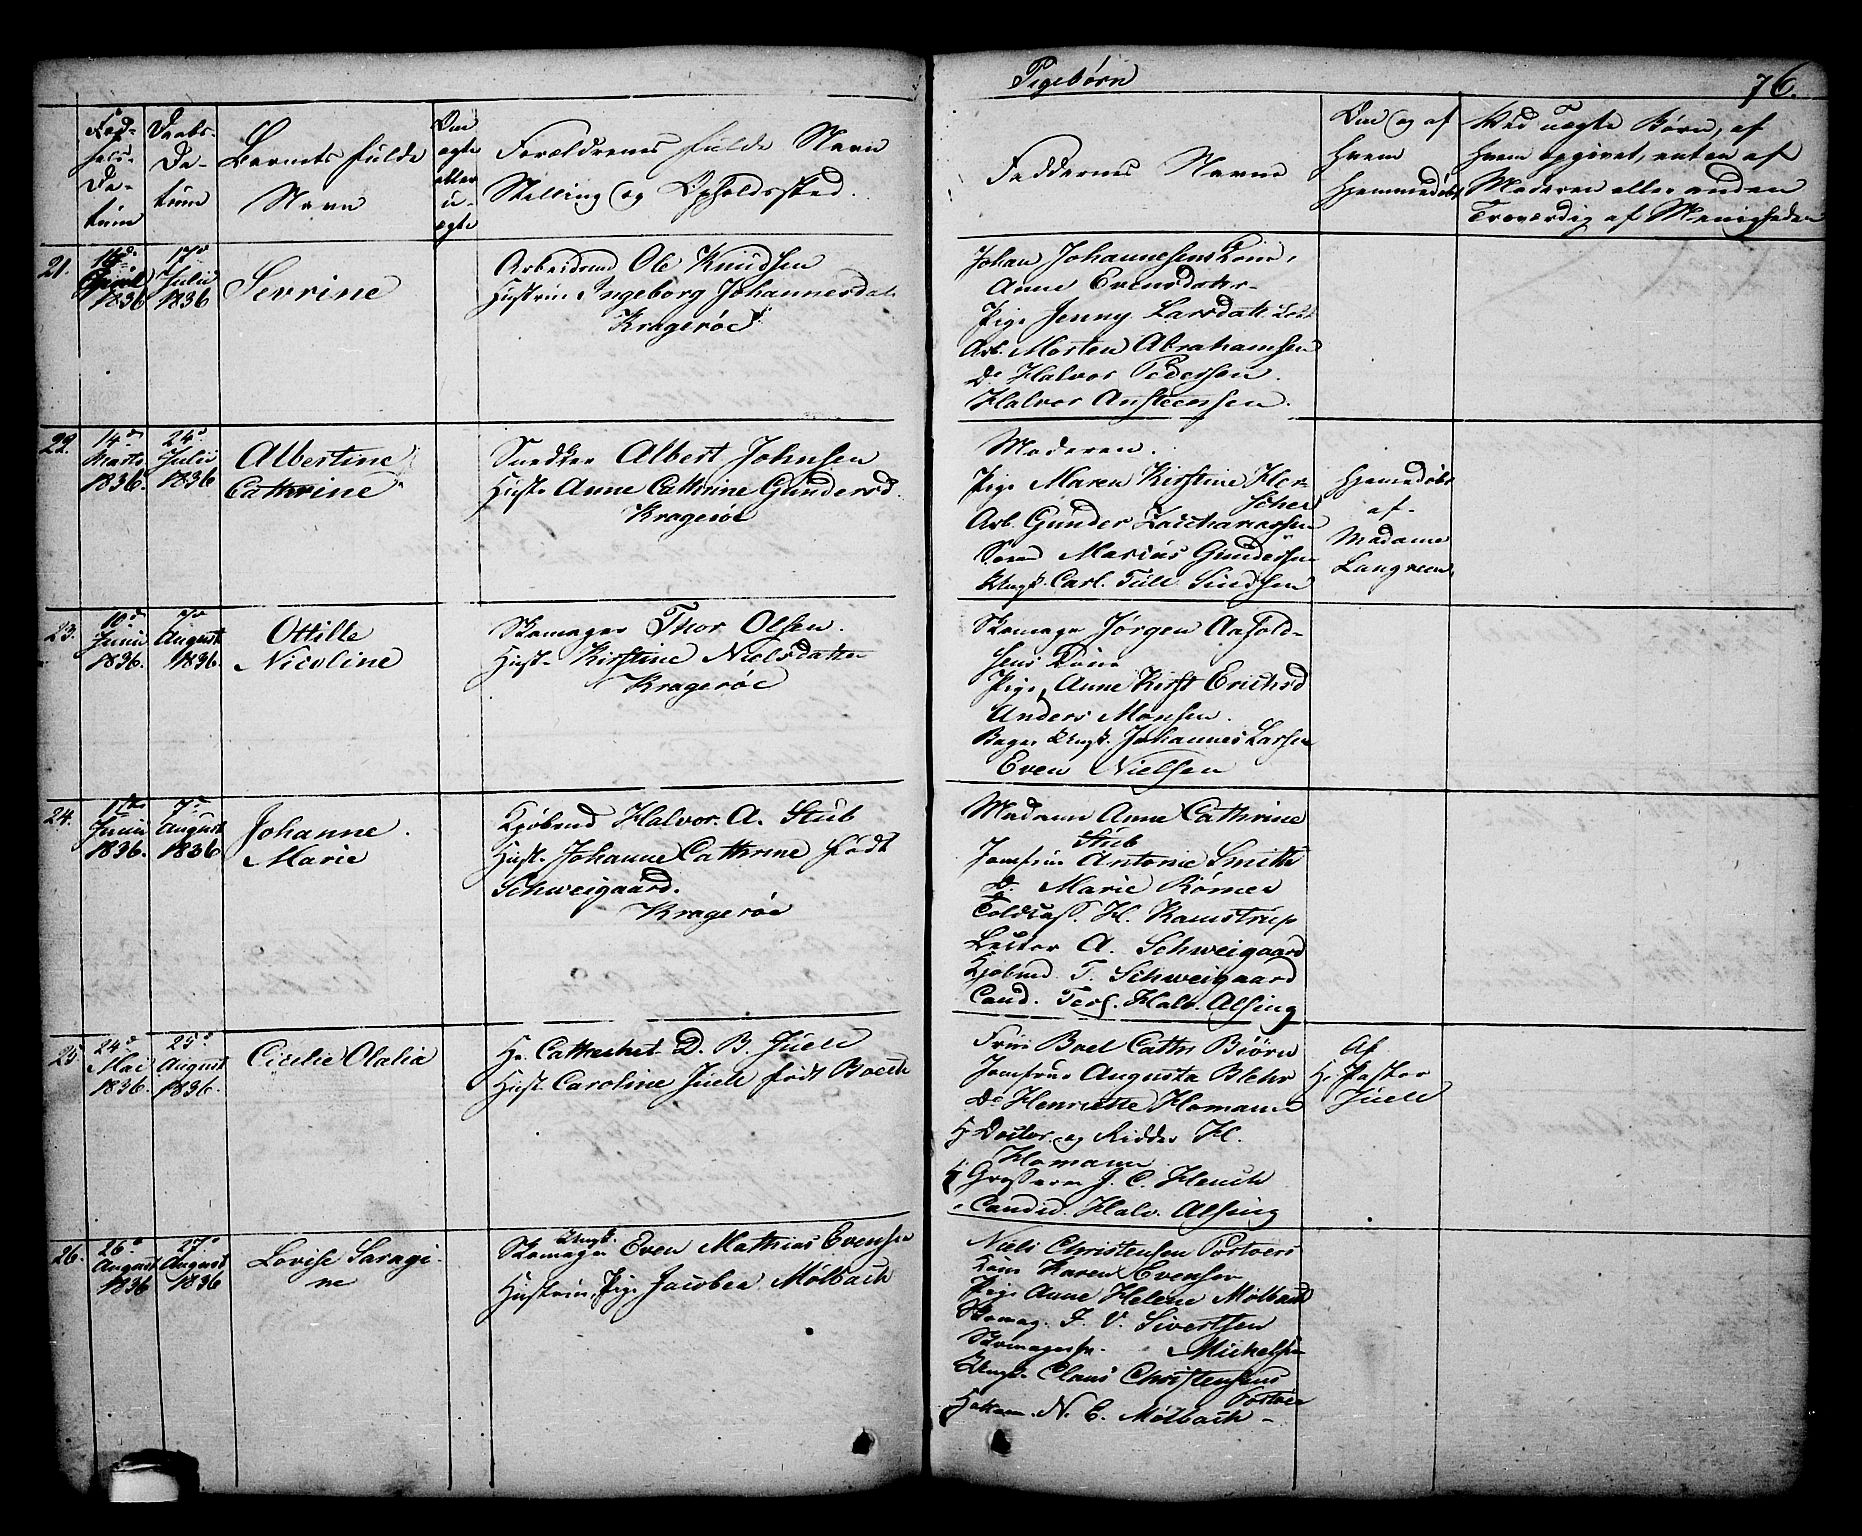 Pigebørn
76.
Fød-
sels-
Da-
tum
Daabs-
Da-
tum
Barnets fulde
Navn
Om
ægte
eller
u-
ægte
Forældrenes fulde Navn
Stilling og Opholdssted.
Faddernes Navne
Om og af
Hvem
Hjemmedøbt
Ved uægte Børn, af
Hvem opgivet, enten af
Moderen eller anden
Troværdig af Menigheden
21.
1836
17de
Julii
1836
Serrine
Arbeidsmd Ole Knudsen
Hustrue Ingeborg Johannesdat.
Kragerøe
Johan Johannesens Kone,
Anne Evensdatr.
Pige Jenny Larsdatt.
Arb. Morten Abrahamsen
Do Halvor Pedersen.
Halvor
22.
14de
Marts
1836.
24de
Julii
1836
Albertine
Cathrine
Snedker Albert Johnsen
Hust. Anne Cathrine Gundersd.
Kragerøe
Moderen.
Pige Maren Kirstine
Arb. Gunder Zacchariassen
Marius Gundersen
Carl Tull
Hjemmedøbt
af
Madame
Langreen
23.
10de
Junii
1836.
7de
August
1836.
Ottille
Nicoline
Skomager Thor Olsen.
Hust. Kirstine Nielsdatter
Kragerøe
Skomager Jørgen
sens Kone
Pige, Anne Kirst Erichsd
Anders Monsen.
Bager Johannes Larsen
Even Nielsen
24.
Junii
1836.
7de
August
1836
Johanne
Marie
Kjøbmd Halvor A. Stub
Hust. Johanne Cathrine født
Schweigaard.
Kragerøe
Madam Anne Cathrine
Stub
Jomfrue Antonie Smith
Do Marie Rømer
Toldcass. H. Kamstrup
Lector A. Schweigaard
Kjøbmd T. Schweigaard
Cand. Halv. Alsing
25
24de
Mai
1836
25de
August
1836.
Cicilie Olalia
Hr. Cattechet D. B. Juell
Hust. Caroline Juell født Boeck
Frue Boel Cath. Biørn
Jomfrue Augusta Blehr
Do Henriette Homann
Hr Doctor og Ridder H.
Homann
J. C. Heuch
Candid. Halv. Alsing
Af
Hr Pastor
Juell
26.
26de
August
1836
27de
August
1836
Lovise Saragi-
ne
Skomager Even Mathias Evensen
Hustrue, Pige Jacobea Mølbach
Niels Christensen Tostvers
Kone Karen Evensen
Pige Anne Helene Mølbach
Skomag. J. V. Sivertsen
Michelsen
Claus Christensens
N. C. Mølbach